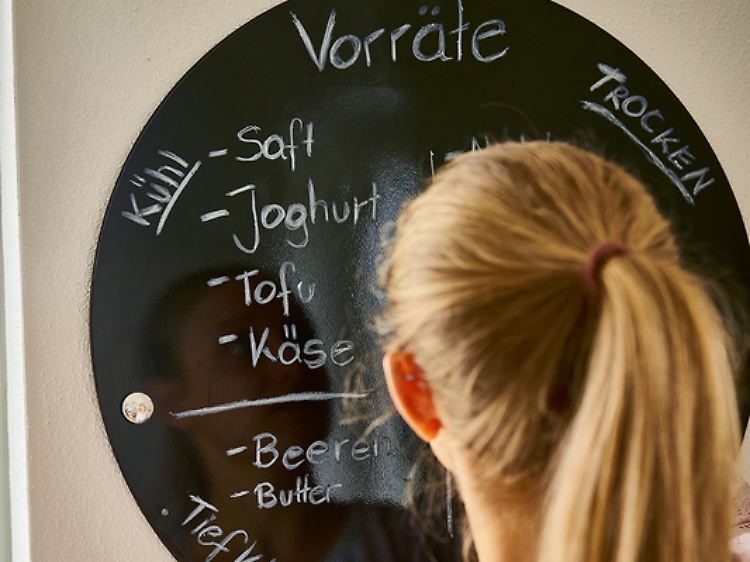 Vorräte
Kühl
- Saft
- Joghurt
- Tofu
- Käse
- Beeren
- Butter
TROCKEN